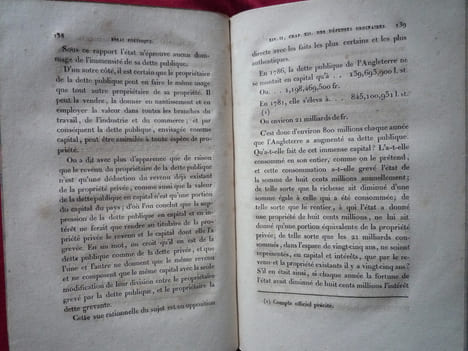 138 ESSAI POLITIQUE.
Sous ce rapport l'état n'éprouve aucun dom-
mage de l'immensité de sa dette publique.
D'un autre côté, il est certain que le propriétaire
de la dette publique peut en faire le même usage
que tout autre propriétaire de sa propriété. Il
peut la vendre, la donner en nantissement et en
employer la valeur dans toutes les branches du
travail, de l'industrie et du commerce ; et par
conséquent la dette publique, envisagée comme
capital, peut être assimilée à toute espèce de pro-
priété.
On a dit avec plus d'apparence que de raison
que le revenu du propriétaire de la dette publique
n'est qu'une déduction du revenu déjà existant
de la propriété privée, comme aussi que la valeur
de la dette publique en capital n'est qu'une portion
du capital du pays ; d'où l'on conclut que la sup-
pression de la dette publique en capital et en in-
térêt ne ferait que rendre au titulaire de la pro-
priété privée le revenu et le capital dont elle l'a
grevée. En un mot, on croit qu'il en est de
l'une et l'autre ne donnent que le même revenu
et ne composent que le même capital avec la seule
modification de leur division entre le propriétaire
grevé par la dette publique, et le propriétaire de la
dette grevante.
Cette vue rationnelle du sujet est en opposition
LIV. II, CHAP. XII. DES DÉPENSES ORDINAIRES. 139
directe avec les faits les plus certains et les plus
authentiques.
En 1786, la dette publique de l'Angleterre ne
se montait en capital qu'à . . . 259,693,900 l. st.
Ou. . . 1,198,469,500 fr.
En 1781, elle s'éleva à. . . . 845,100,931 l. st.
(1)
Ou environ 21 milliards de fr.
C'est donc d'environ 800 millions chaque année
que l'Angleterre a augmenté sa dette publique.
Qu'a-t-elle fait de cet immense capital ? L'a-t-elle
consommé en son entier, comme on le prétend ;
et cette consommation a-t-elle grevé l'état de la
somme de huit cents millions annuellement ;
de telle sorte que la richesse ait diminué d'une
somme égale à celle qui a été consommée ; de
telle sorte que le rentier, à qui l'état doit la
somme de huit cents millions, ne lui ait
donné qu'une portion équivalente de la propriété
privée ; de telle sorte que les 21 milliards consom-
més, dans l'espace de vingt cinq ans, ne soient
représentés, en capital et intérêts, que par le re-
venu et la propriété existans il y a vingt cinq ans ?
S'il en était ainsi, si chaque année la fortune de
l'état avait diminué de huit cents millions l'intérêt
(1) Compte officiel précité.